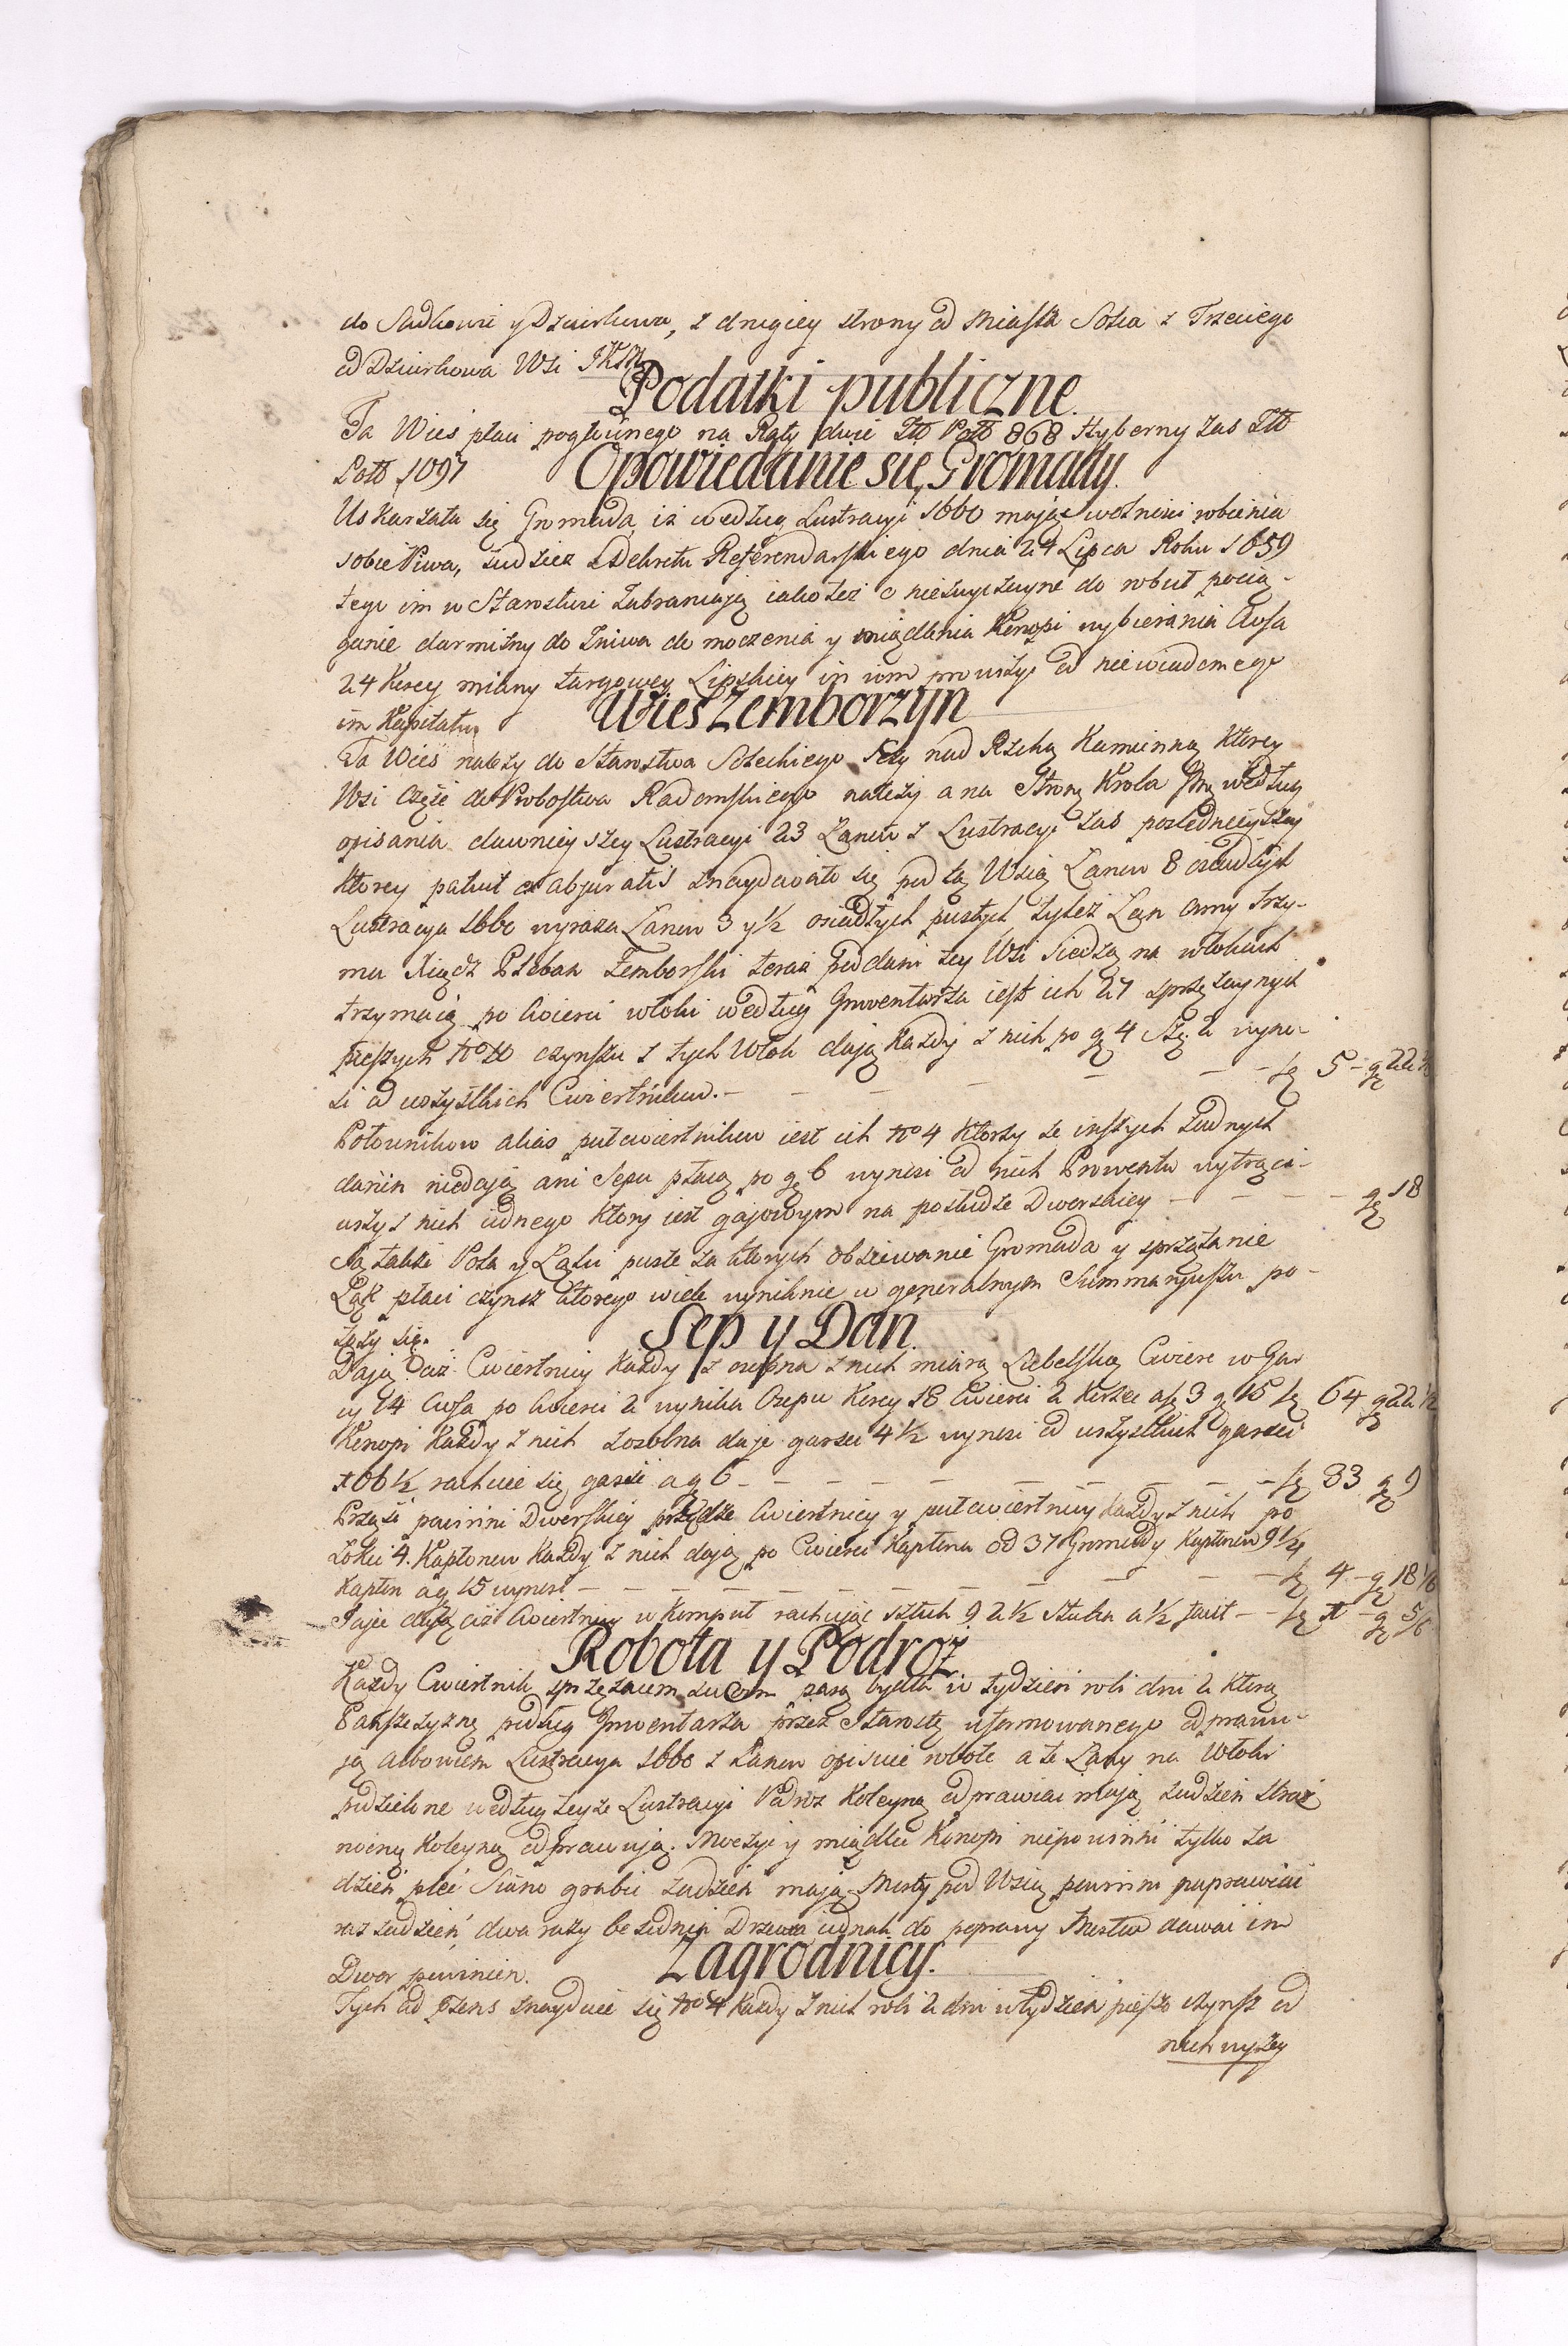 do Sadkowic y Dziurkowa, z drugiey strony od Miasta Solca z Trzeciego
od Dziurkowa Wsi JKM
Podatki publiczne.
Ta Wieś płaci pogłównego na Raty dwie Złł Poll 868 Hyberny zas Złł
Poll 1097
Opowiedanie się Gromady.
Uskarzała się Gromada iz według Lustracyi 1660 mając wolności robienia
sobie Piwa, tudziez z Dekretu Referendarskiego dnia 24 Lipca Roku 1659
tego im w Starostwie zabraniają iako tez o niezwyczayne do robut pocią-
ganie darmiżny do Zniwa do moczenia y miądlenia Konopi wybierania Owsa
24 Korcy miary targowey Lipskiey in vim prowizyi od niewiadomego
im Kapitału
Wies Zemborzyn
Ta Wieś należy do Starostwa Soleckiego leży nad Rzeką Kamienną ktorey
Wsi Część do Probostwa Radomskiego należy a na Stronę Krola Jmę według
opisania dawnieyszey Lustracyi 23 Łanow z Lustracyi zas poslednieyszey
ktorey patuit ex abjuratis znaydowało się pod tą Wsią Łanow 8 osiadłych
Lustracya 1660 wyraza Łanow 3 y ½ osiadłych pustych tylez Łan orny trzy-
ma Xiądz Pleban Zemborski teraz Poddani tey Wsi Siedzą na włokach
trzymaią po cwierci włoki według Inwentarza iest ich 27 sprzęzaynych
pieszych No 10 czynszu z tych Włok dają każdy z nich po g 4 Sz. 2 wyno-
si od wszystkich Cwiertnikow. - - - - - - f 5 - g 22 ½
Połownikow alias pułcwiertnikow iest ich No 4 ktorzy ze inszych zadnych
danin niedają ani Sepu płacą po g 6 wynosi od nich Prowentu wytrąci-
wszy z nich iednego ktory iest gajowym na posludze Dworskiey - - - - g 18
Są także Pola y Łąki puste za ktorych obsiewanie Gromada y sprzątanie
Łąk płaci czynsz ktorego wiele wyniknie w generalnym Summaryuszu po-
łoży się.
Sep y Dan.
Dają ciż Cwiertnicy Każdy z osobna z nich miarą Lubelską Cwierc w Gar
cy 14 Owsa po cwierci 2 wynika Osepu Korcy 18 Cwierci 2 Korzec a f 3 g 15 f 64 g 22 ½
Konopi Każdy z nich zosobna daje garsci 4 ½ wynosi od wszystkich garsci
166 ½ rachuie się garsć a g 6 - - - - - - - - f 33 g 9
Prząść powinni Dworskiey przędze Cwiertnicy y pułcwiertnicy Każdy z nich po
Łokci 4. Kapłonow Każdy z nich dają po Cwierci Kapłona od 37 Gromady Kapłonow 9 ¼
Kapłon a g 15 wynosi - - - - - - - - - f 4 - g 18 ⅙
Robota y Podroż.
Każdy Cwiertnik sprzęzaiem swoim parą bydła w tydzień robi dni 2 ktorą
Pańszczyznę podług Inwentarza przez Starostę uformowanego odprawu-
ją albowiem Lustracya 1660 z Łanow opisuie robote a te Łany na Włoki
podzielone według teyże Lustracyi Podroż koleyną odprawiac mają zadzień Straż
nocną koleyną odprawują. Moczyć y miądlic Konopi niepowinni tylko za
dzień pleć Siano grabic zadzień mają Mosty pod Wsią powinni poprawiac
raz zadzień, dwa razy bezednia Drzewa iednak do poprawy Mostow dawac im
Dwor powinien.
Zagrodnicy.
Tych ad praesens znayduie się No 4 Każdy z nich robi 2 dni w tydzień pieszo czynsz od
nich wyżey